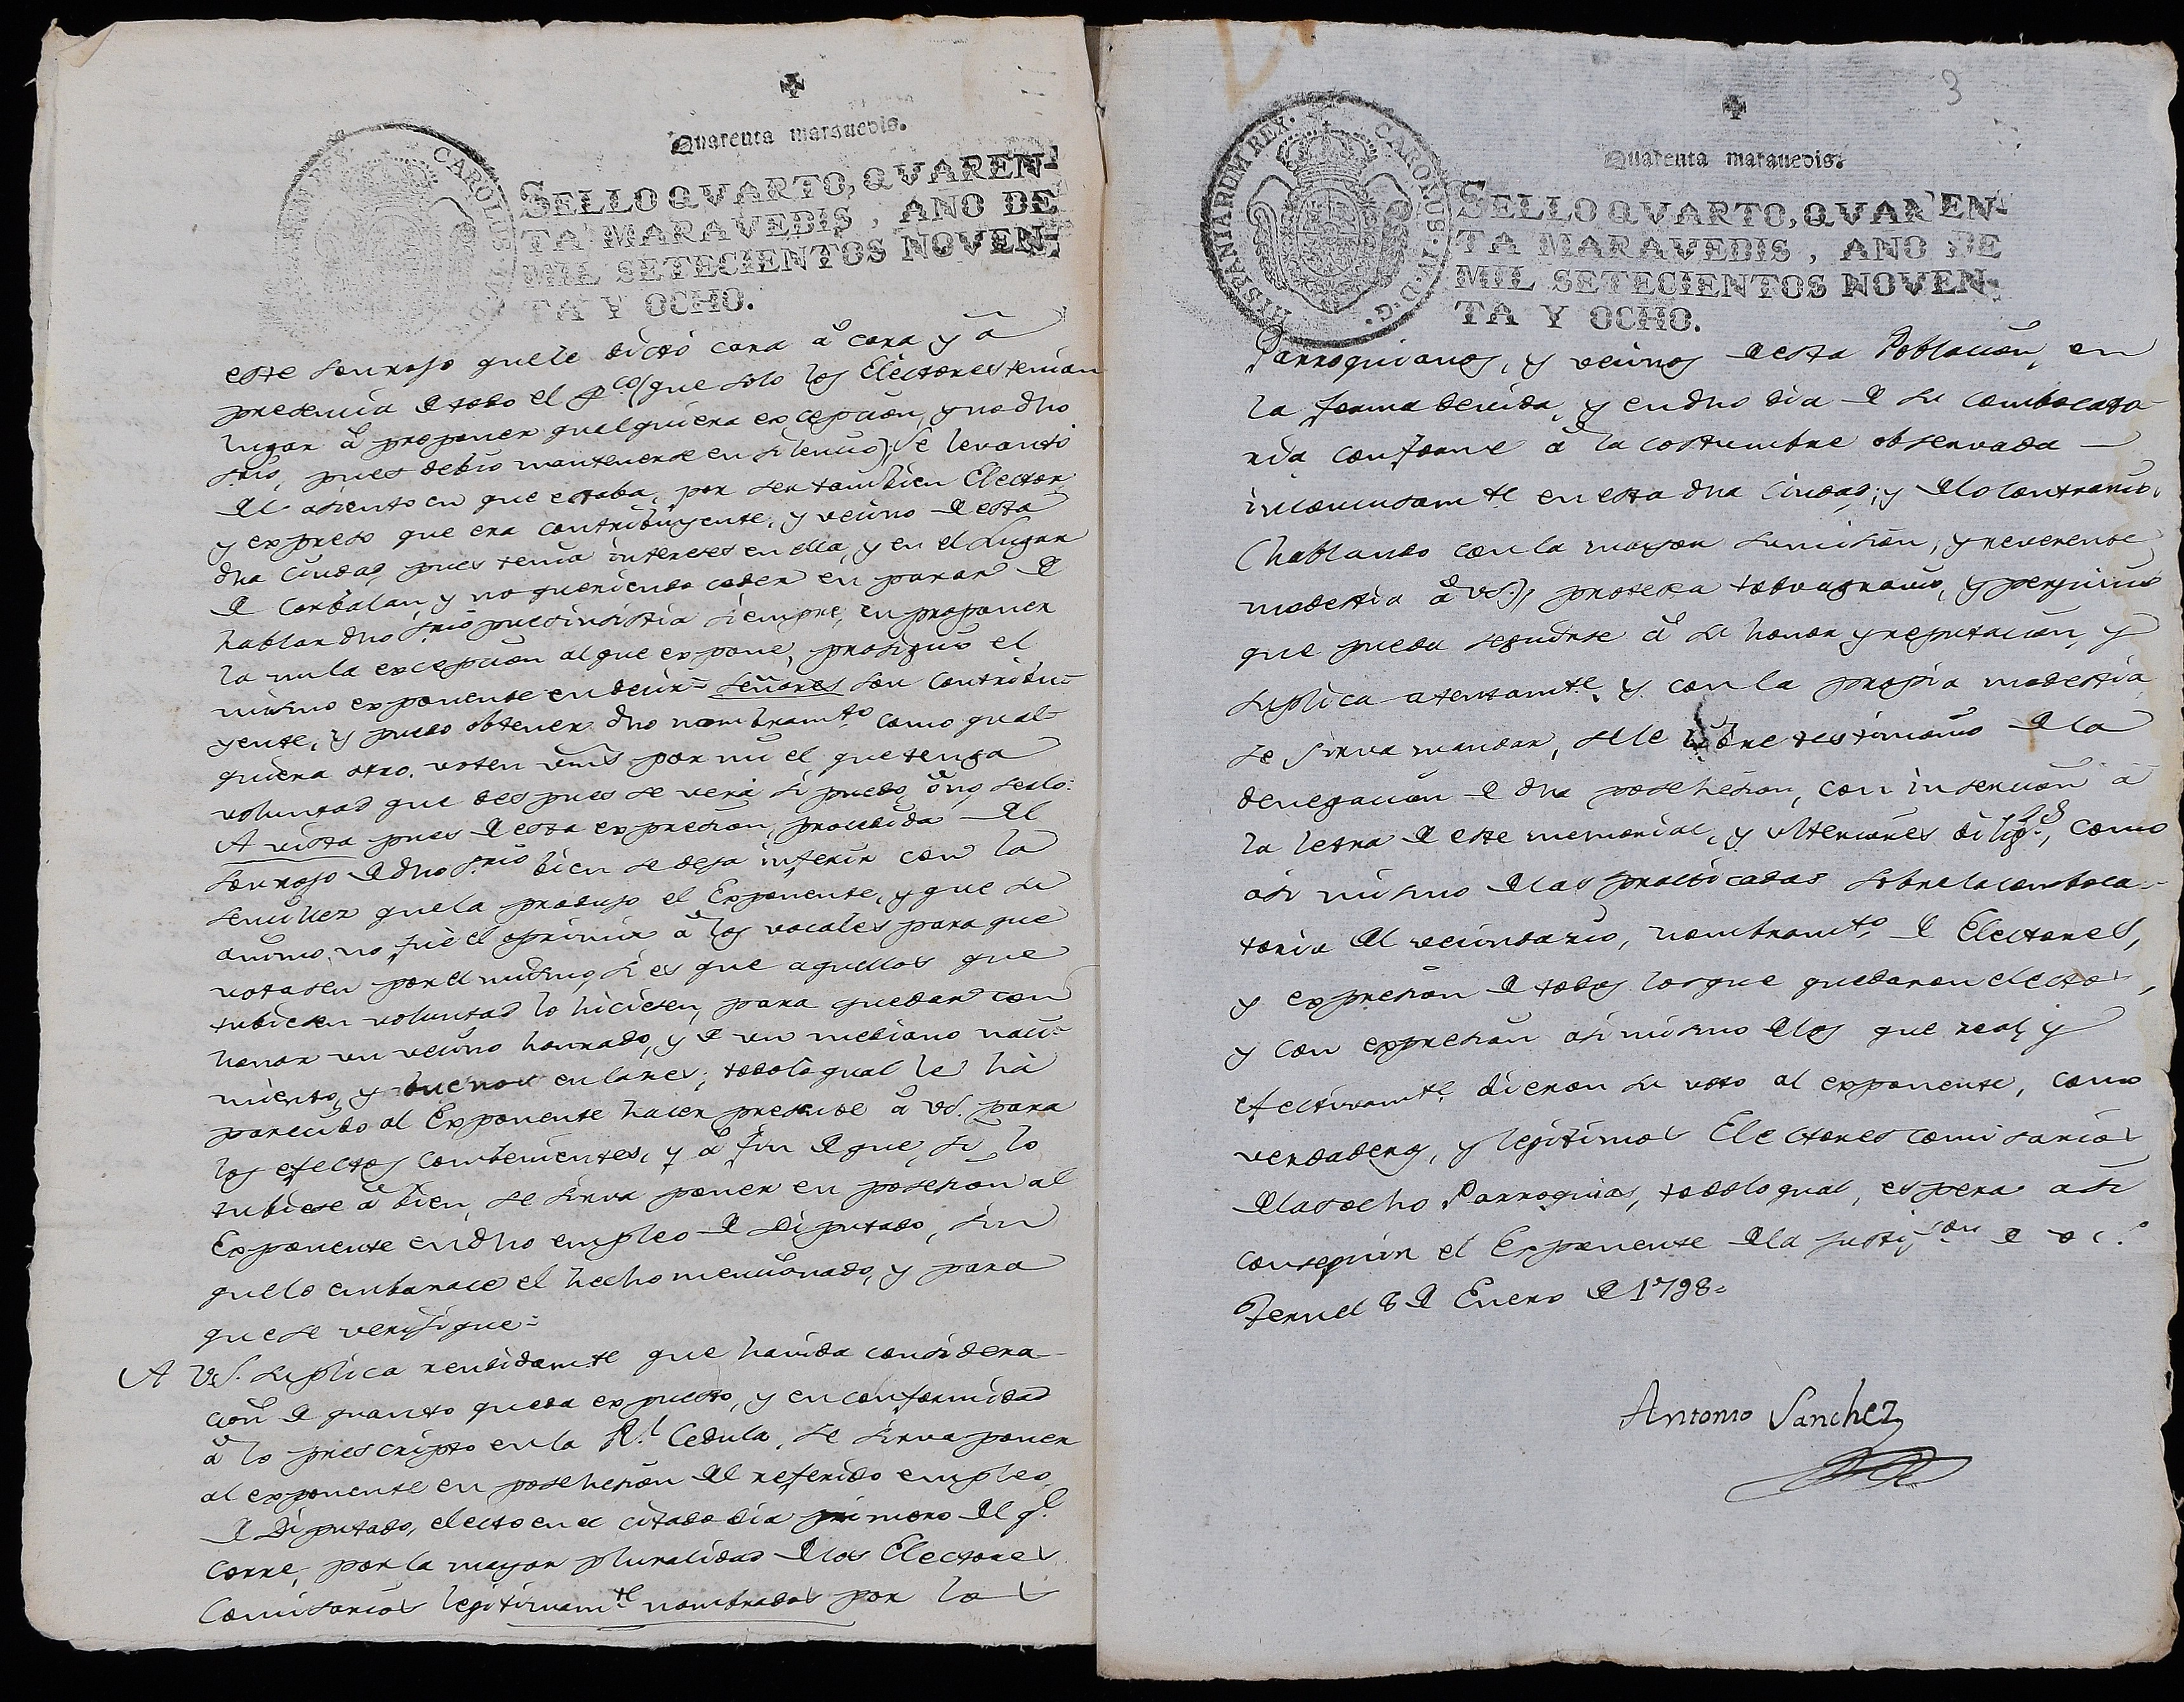 Quarenta marauedis.
SELLO QVARTO, QVAREN-
TA MARAVEDIS, AÑO DE
MIL SETECIENTOS NOVEN-
TA Y OCHO.
CAROLUS
este sonrojo que le dictó cara â cara y â
presencia de todo el pco (que solo los Electores tenian
lugar â proponer qualquiera excepcion, y no dho
Srio, pues debio mantenerse en silencio), se levantó
del asiento en que estaba, por ser tambien Elector,
y expresó que era contribuyente, y vecino de esta
dha Ciudad, pues tenia intereses en ella, y en el Lugar
de Corbalan, y no queriendo ceder en parar de
hablar dho Srio pues insistia siempre, en proponer
la nula excepcion al que expone, prosiguio el
mismo exponente en decir= señores soy contribu=
yente, y puedo obtener dho nombramto como qual=
quiera otro, voten vms. por mi el que tenga
voluntad que despues se verá si puedo, ô no, serlo:
A vista pues de esta expresion, procedida del
sonrojo de dho Srio bien se deja inferir con la
sencillez que la produjo el Exponente, y que su
animo, no fue el oprimir â los vocales para que
votasen por el mismo, si es que aquellos que
tubiesen voluntad lo hiciesen, para quedar con
honor un vecino honrado, y de un mediano naci=
miento, y buenos enlaces; todo lo qual le há
parecido al Exponente hacer presente â VS. para
los efectos combenientes, y â fin de que, si lo
tubiese â bien, se sirva poner en posesion al
Exponente en dho empleo de Diputado, sin
que lo embarace el hecho mencionado, y para
que se verifique=
A VS. suplica rendidamte que havida considera-
cion de quanto queda expuesto, y en conformidad
â lo prescripto en la Rl. Cedula, se sirva poner
al exponente en posehesion del referido empleo
de Diputado, electo en el citado dia primero del q.e
corre, por la mayor pluralidad de los Electores
Comisarios legitimamte nombrados por los
3
Quarenta marauedis.
CAROLUS·IV·D·G· HISPANIARUM REX·
SELLO QVARTO, QVAREN-
TA MARAVEDIS, AÑO DE
MIL SETECIENTOS NOVEN-
TA Y OCHO.
Parroquianos, y vecinos de esta Poblacion, en
la forma devida, y en dho dia de su combocato-
ria conforme â la costumbre observada
inconcusamte en esta dha Ciudad; y de lo contrario
(hablando con la mayor sumision, y reverente
modestia â VS.), protexta todo agravio, y perjuicio
que pueda seguirse â su honor y reputacion, y
suplica atentamte, y con la propia modestia
se sirva mandar, se le libre testimonio de la
denegacion de dha posehesion, con insercion â
la letra de este memorial, y ulteriores diligs, como
asi mismo de las practicadas sobre la comboca-
toria del vecindario, nombramto de Electores,
y expresion de todos los que quedaron electos,
y con expresion asi mismo de los que real, y
efectivamte dieron su voto al exponente, como
verdaderos, y legitimos Electores comisarios
de las ocho Parroquias, todo lo qual, espera asi
conseguir el Exponente de la justificon de VS.
Teruel 8 de Enero de 1798=
Antonio Sanchez